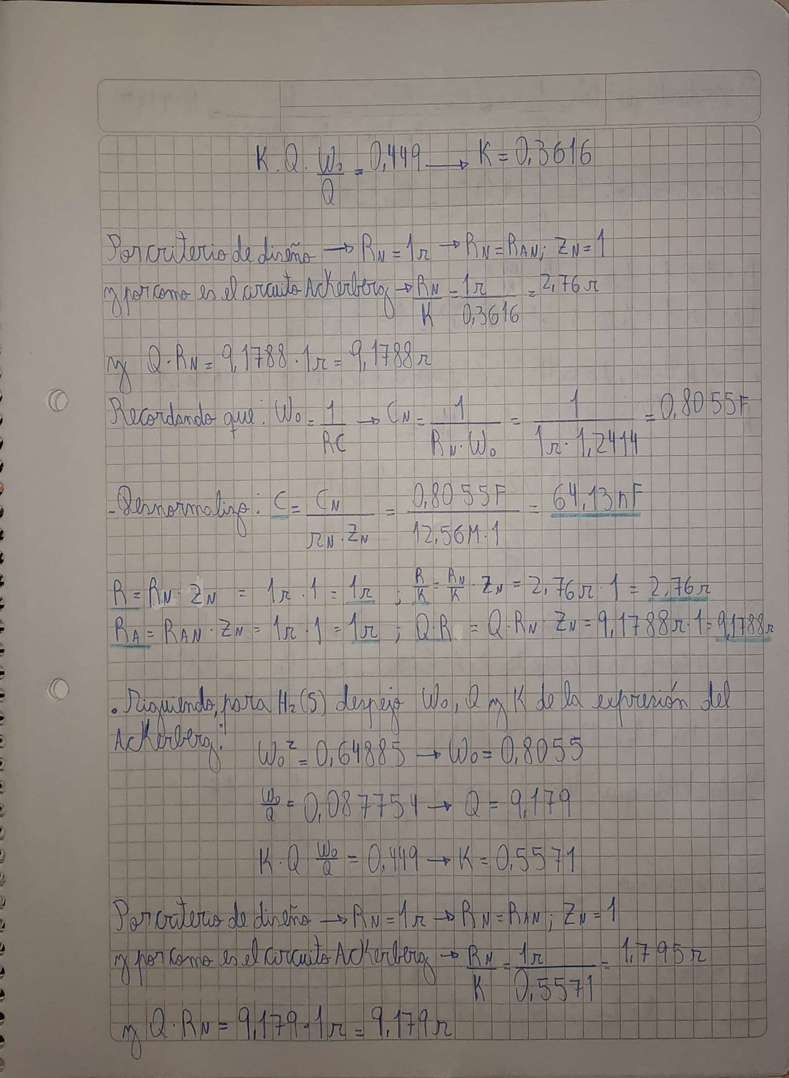 K.Q.W₀/Q = 0,449 → K = 0,3616
Por criterio de diseño → RN = 1Ω → RN = RAN; ZN = 1
y por como es el circuito Ackerberg → RN/K = 1Ω/0,3616 = 2,76Ω
y Q.RN = 9,1788.1Ω = 9,1788Ω
Recordando que: W₀ = 1/RC → CN = 1/RN.W₀ = 1/1Ω.1,2414 = 0,8055F
- Desnormalizo: C = CN/ΩN.ZN = 0,8055F/12,56M.1 = 64,13nF
R = RN.ZN = 1Ω.1 = 1Ω ; R/K = RN/K.ZN = 2,76Ω.1 = 2,76Ω
RA = RAN.ZN = 1Ω.1 = 1Ω ; Q.R = Q.RN.ZN = 9,1788Ω.1 = 9,1788Ω
• Siguiendo, para H₂(S) despejo W₀, Q y K de la expresión del
Ackerberg:
W₀² = 0,64885 → W₀ = 0,8055
W₀/Q = 0,087754 → Q = 9,179
K.Q W₀/Q = 0,449 → K = 0,5571
Por criterio de diseño → RN = 1Ω → RN = RAN; ZN = 1
y por como es el circuito Ackerberg → RN/K = 1Ω/0,5571 = 1,795Ω
y Q.RN = 9,179.1Ω = 9,179Ω